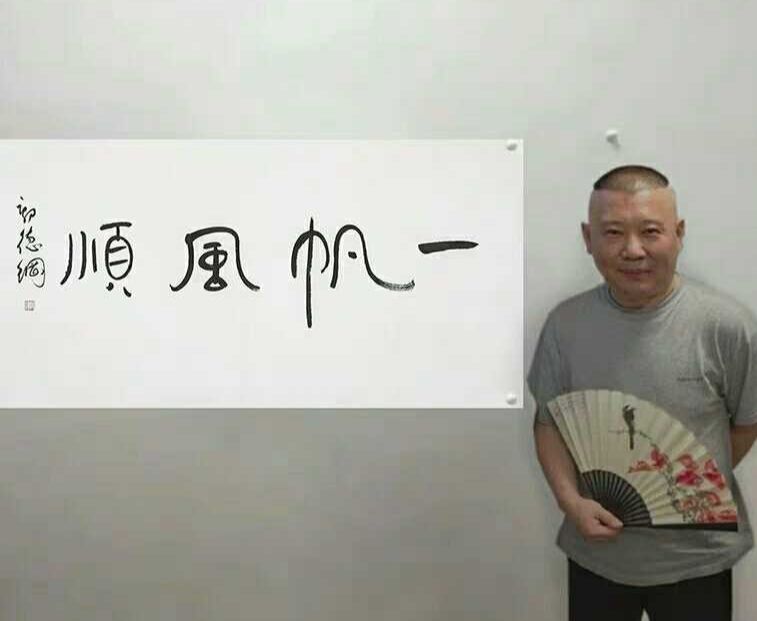 一帆風順
郭德綱